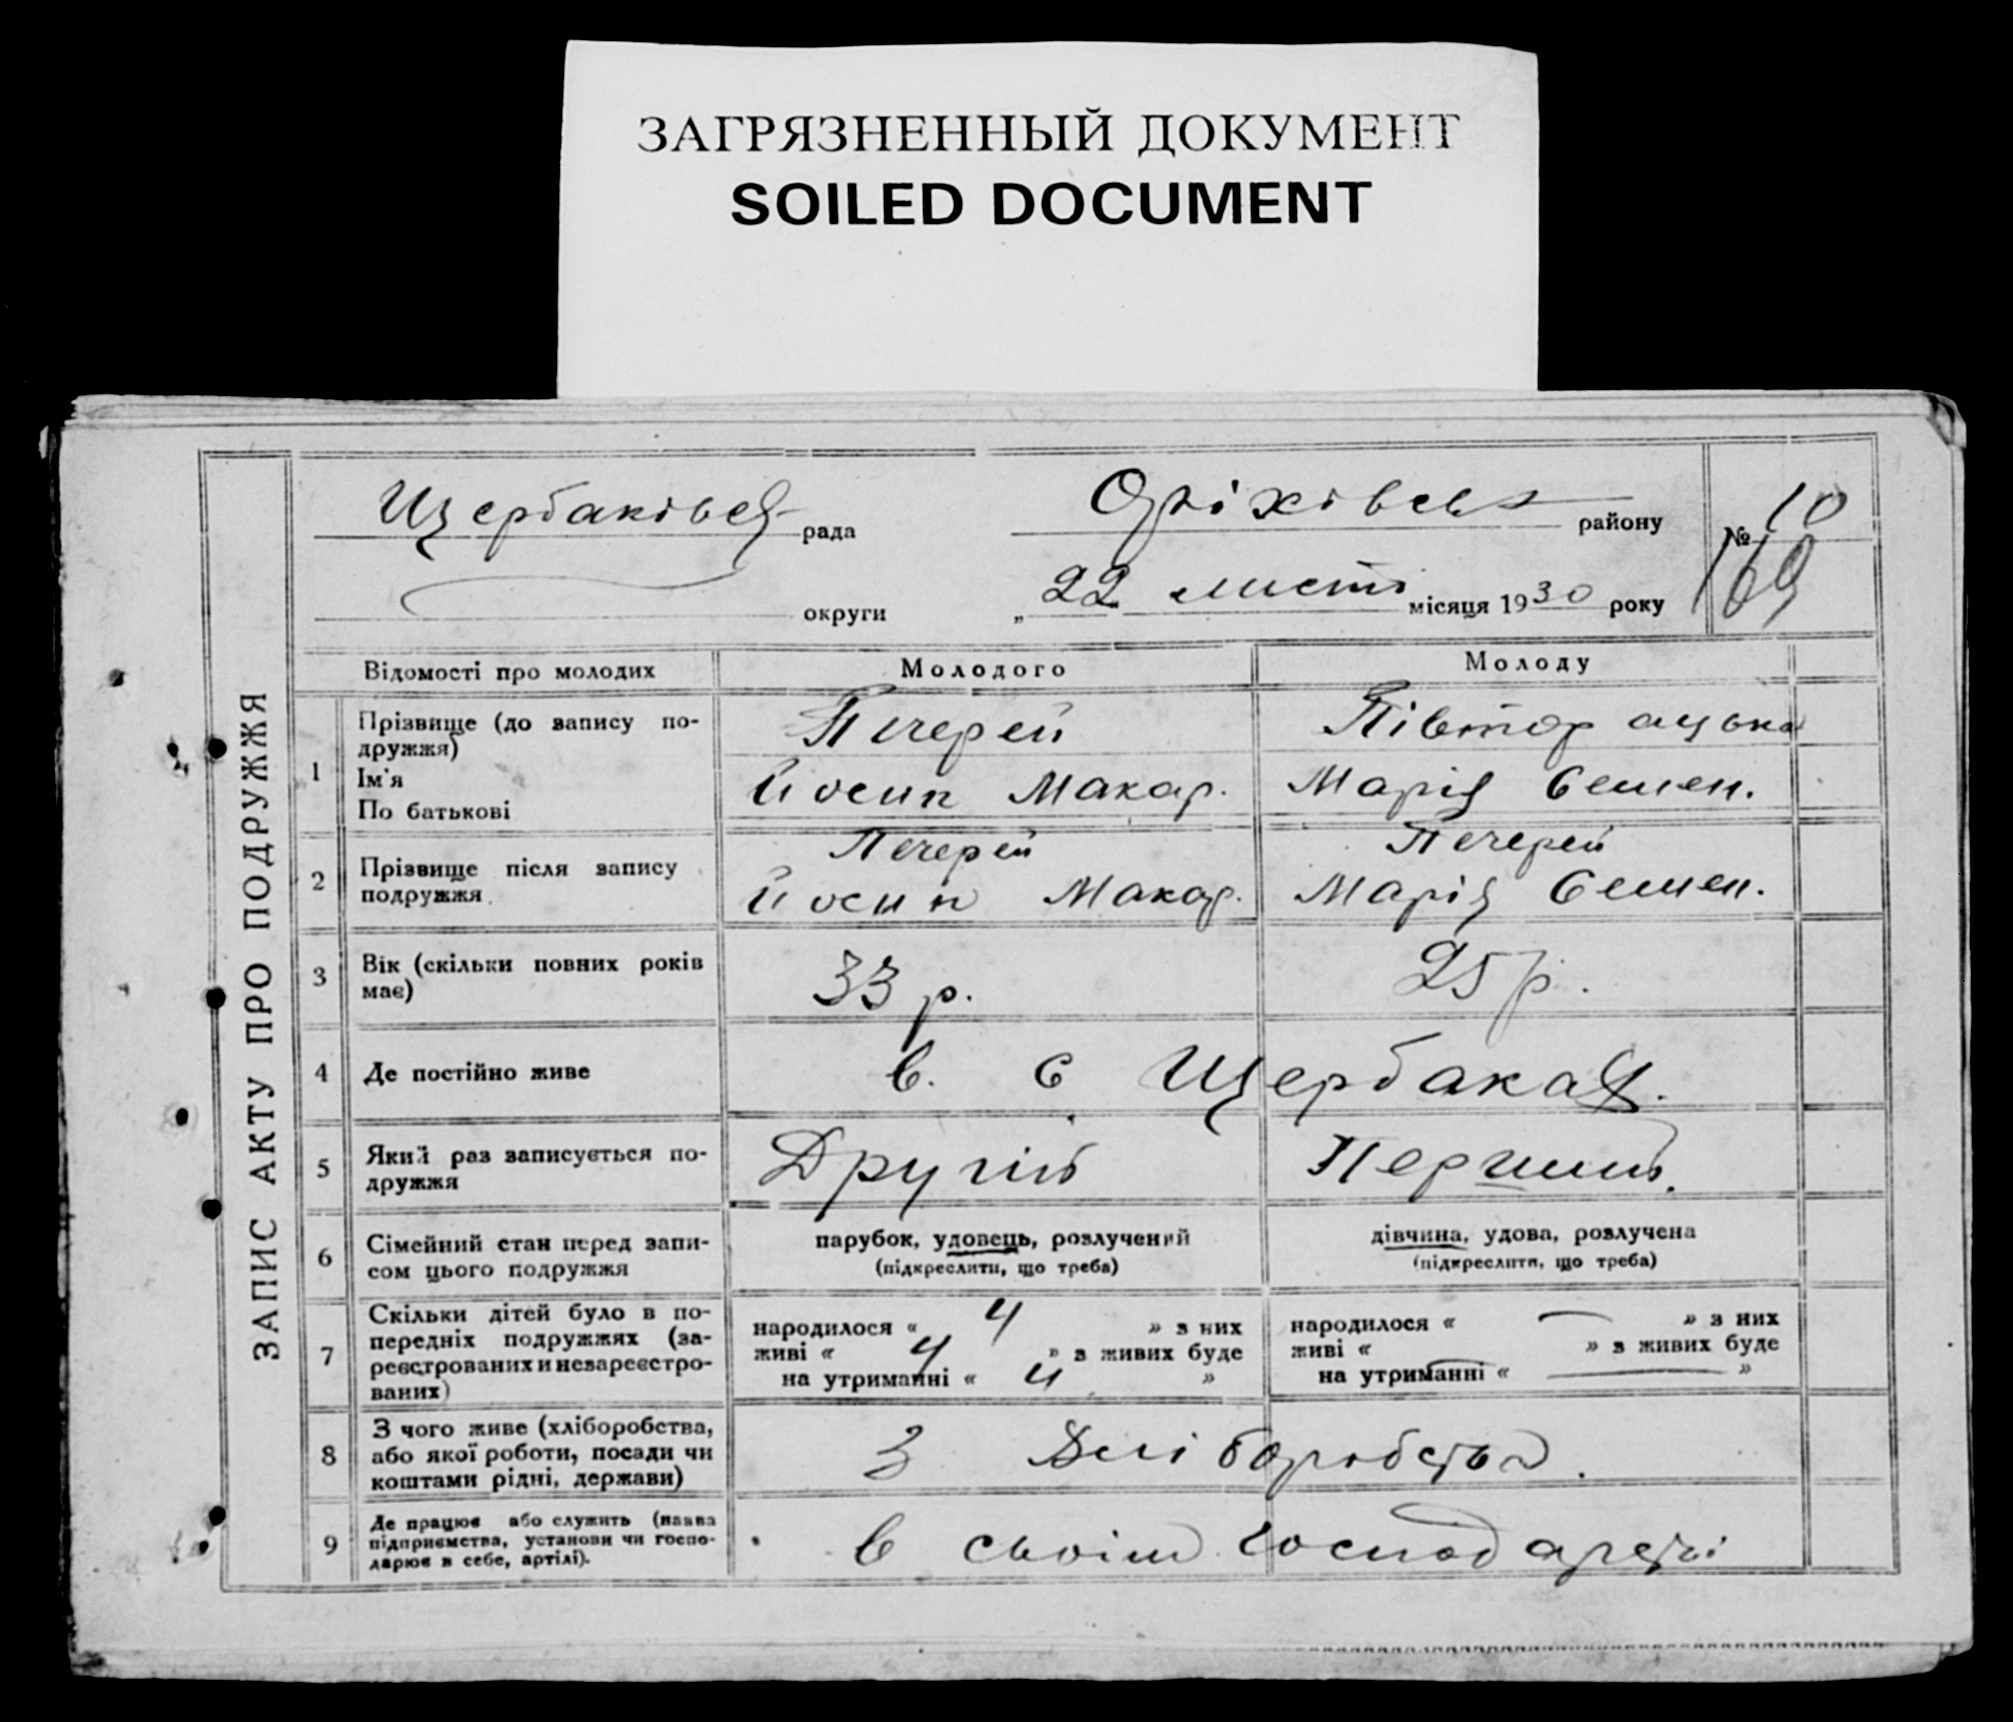 ЗАГРЯЗНЕННЫЙ ДОКУМЕНТ
SOILED DOCUMENT
ЗАПИС АКТУ ПРО ПОДРУЖЖЯ
Щербаківся рада Оріхівськ району № 10
округи „22 листо місяця 1930 року 169
Відомості про молодих Молодого Молоду
1 Прізвище (до запису по-
дружжя) Печерей Півторацька
Ім'я Йосип Макар. Марія Семен.
По батькові
2 Прізвище після запису
подружжя
Печерей Печерей
Йосип Макар. Марія Семен.
3 Вік (скільки повних років
має) 33 р. 25 р.
4 Де постійно живе в. с Щербаках.
5 Який раз записується по-
дружжя Другий Перший.
6 Сімейний стан перед запи-
сом цього подружжя
парубок, удовець, розлучений
(підкреслити, що треба)
дівчина, удова, розлучена
(підкреслити, що треба)
7 Скільки дітей було в по-
передніх подружжях (за-
реєстрованих и незареєстро-
ваних)
народилося « 4 » з них
живі « 4 » з живих буде
на утриманні « 4 »
народилося « — » з них
живі « » з живих буде
на утриманні « — »
8 З чого живе (хліборобства,
або якої роботи, посади чи
коштами рідні, держави)
З хліборобства.
9 Де працює або служить (назва
підприємства, установи чи госпо-
дарює в себе, артілі).
в своїм господарстві